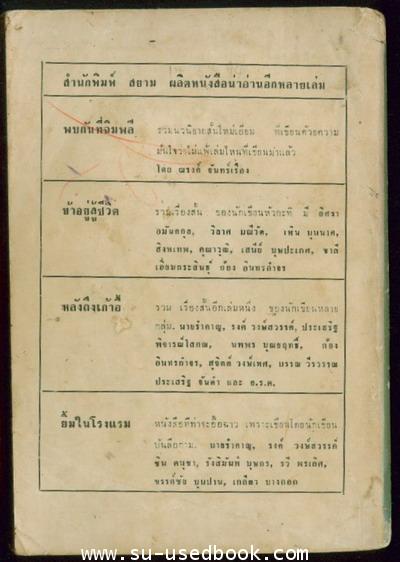 สำนักพิมพ์ สยาม ผลิตหนังสือน่าอ่านอีกหลายเล่ม
พบกันที่ฉิมพลี
รวมนวนิยายสั้นใหม่เอี่ยม ที่เขียนด้วยความ
มั่นใจว่าไม่แพ้เล่มไหนที่เขียนมาแล้ว
โดย ณรงค์ จันทร์เรือง
ข้าอยู่สู้ชีวิต
รวมเรื่องสั้น ของนักเขียนหัวกะทิ มี อิศรา
อมันตกุล, วิลาศ มณีวัต, เพ็น บุนนาค,
สิงหเทพ, คุณาวุฒิ, เสนีย์ บุษปะเกศ, ชาลี
เอี่ยมกระสินธุ์ ก้อง อินทรกำจร
หลังถึงเก้าอี้
รวม เรื่องสั้นอีกเล่มหนึ่ง ของนักเขียนหลาย
กลุ่ม. นายรำคาญ, รงค์ วงษ์สวรรค์, ประเสริฐ
พิจารณ์โสภณ, นพพร บุณยฤทธิ์, ก้อง
อินทรกำจร, สุจิตต์ วงษ์เทศ, บรรณ วีรวรรณ
ประเสริฐ จันดำ และ อ.ร.ด.
ยิ้มในโรงแรม
หนังสือที่ท่าจะอื้อฉาว เพราะเขียนโดยนักเขียน
บันลือนาม. นายรำคาญ, รงค์ วงษ์สวรรค์
ขรรค์ชัย บุนปาน, เกลียว บางกอก
www.su-usedbook.com